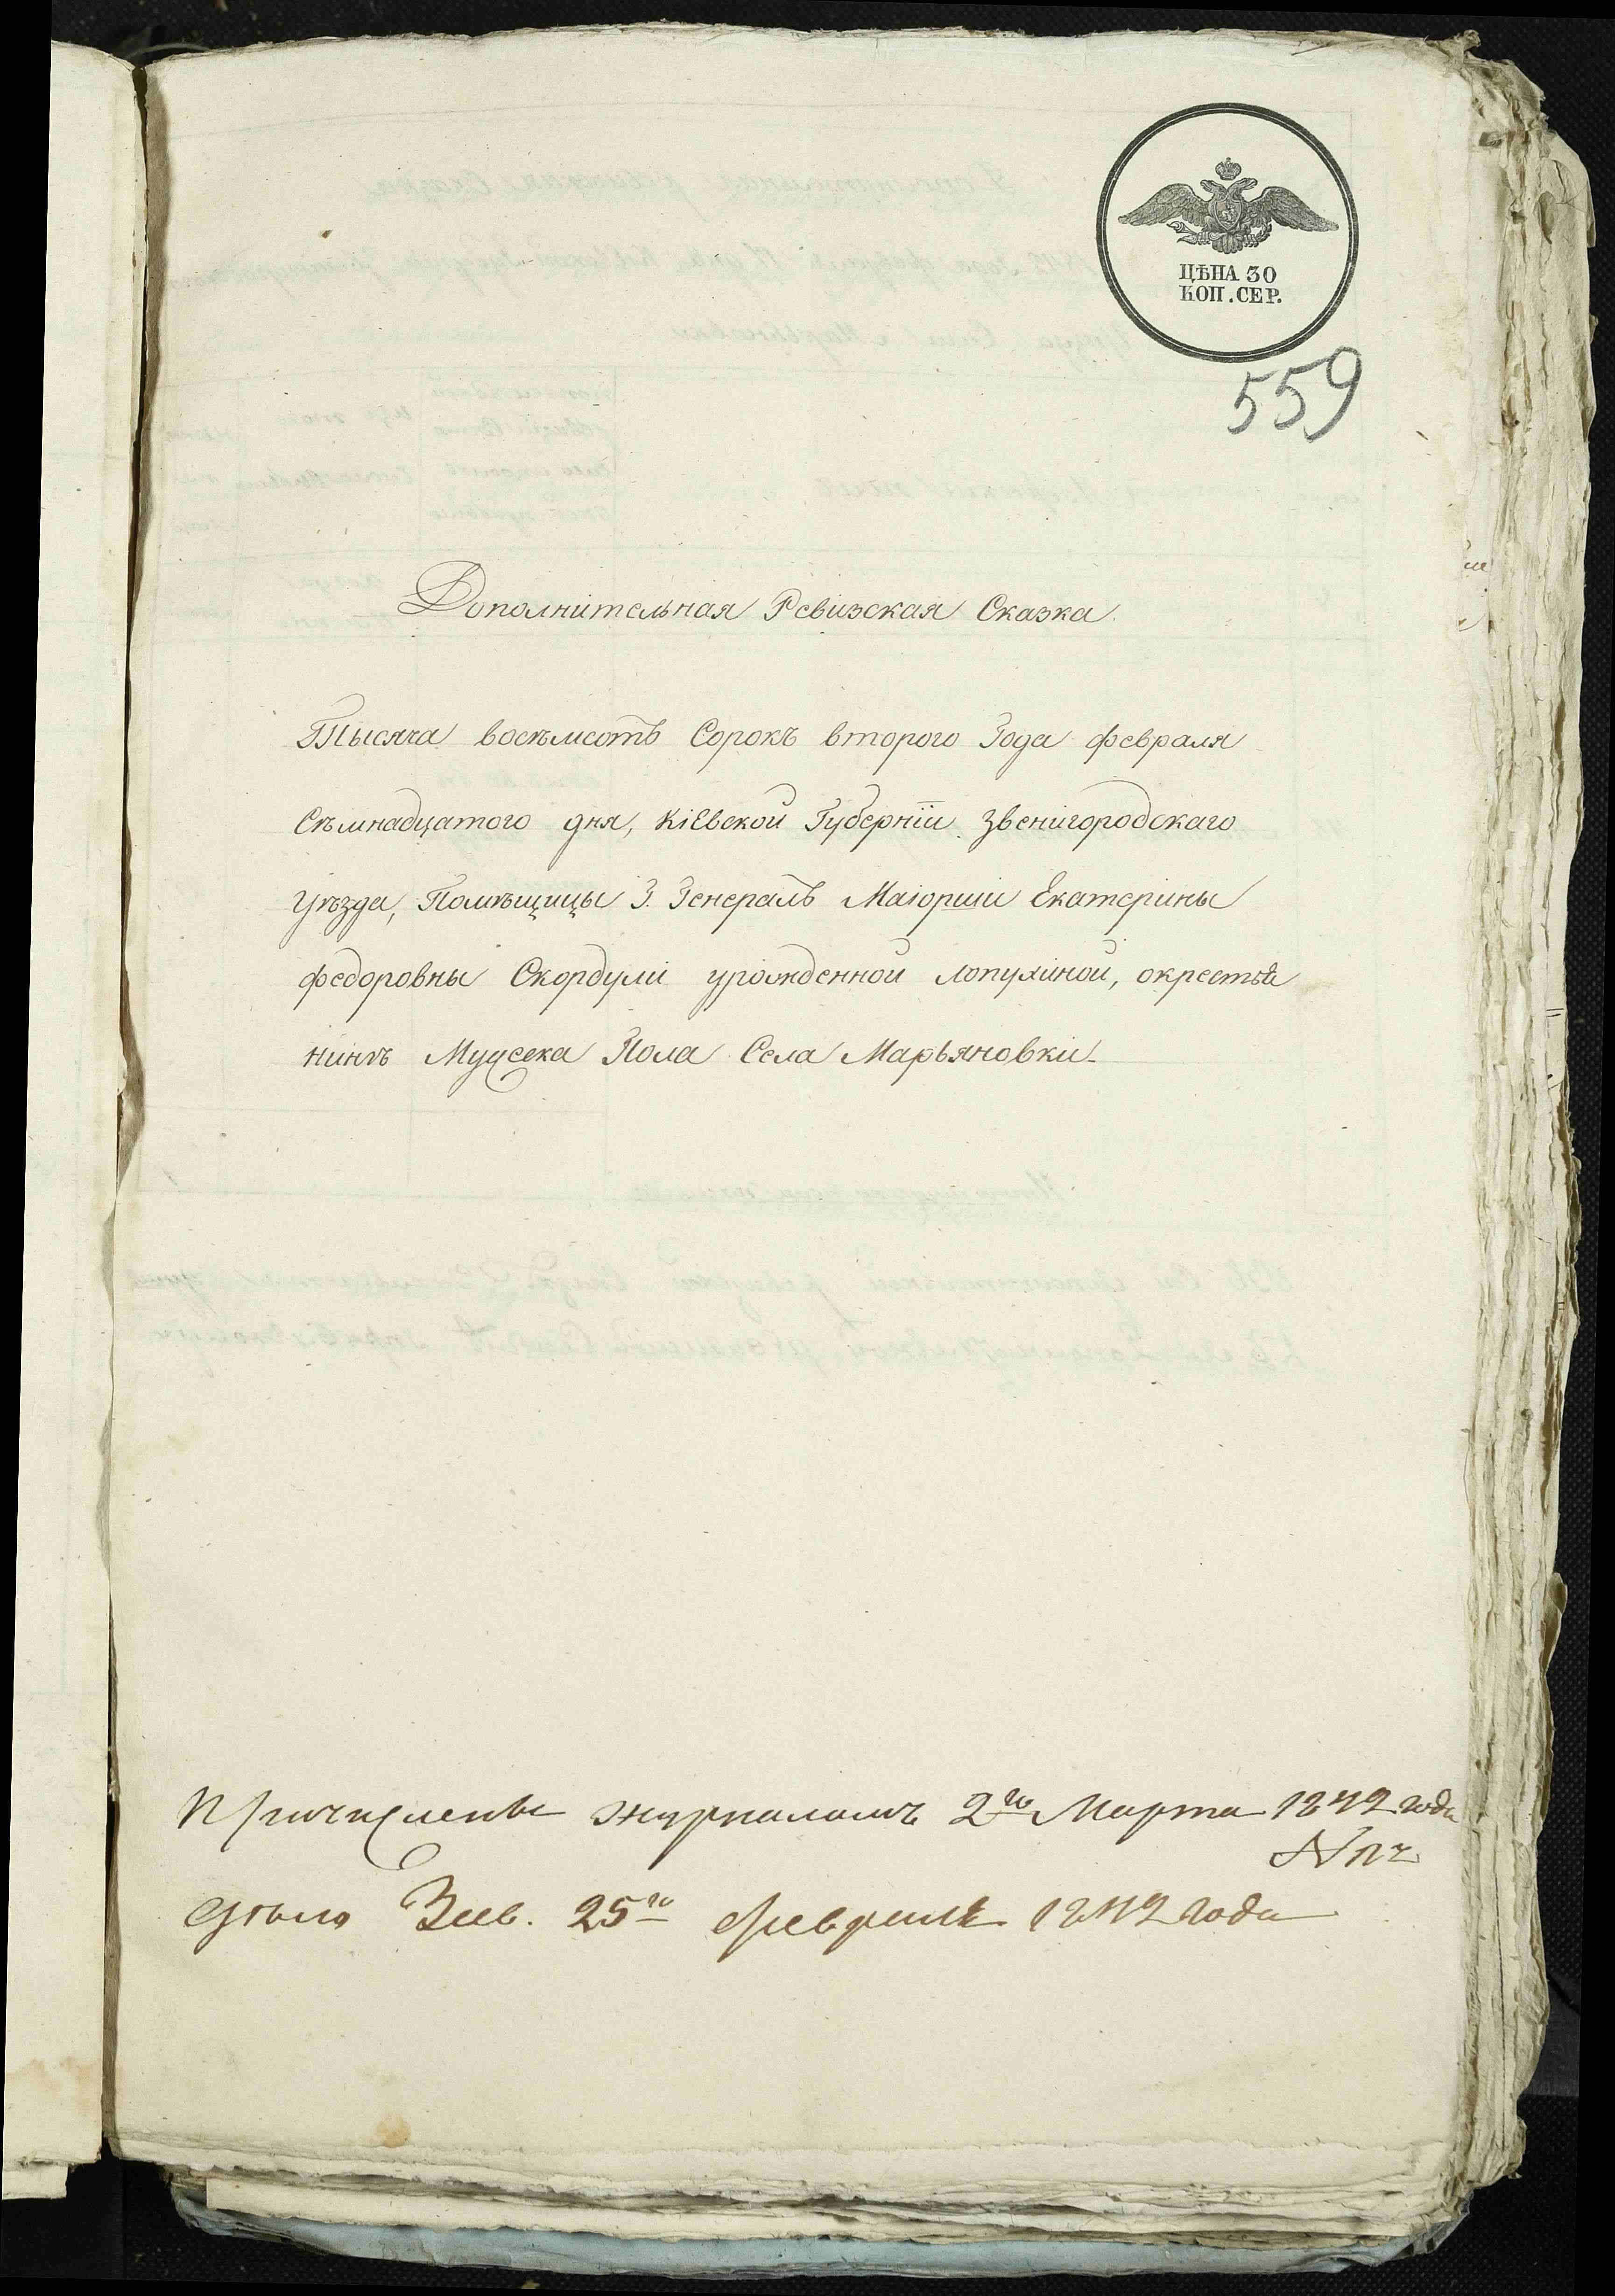 ЦѢНА 30
КОП. СЕР.
559
Дополнительная Ревизская Сказка.
Тысяча восемьсотъ Сорокъ второго Года февраля
Семнадцатого дня, Кіевской Губерніи Звенигородскаго
Уѣзда, Помѣщицы Г. Генералъ Маіорши Екатерины
Федоровны Скордули урожденной Лопухиной, о крестья
нинѣ Мужеска Пола Села Марьяновки.
Причислены журналомъ 2го Марта 1842 года
дѣло Зве. 25го февраля 1842 года